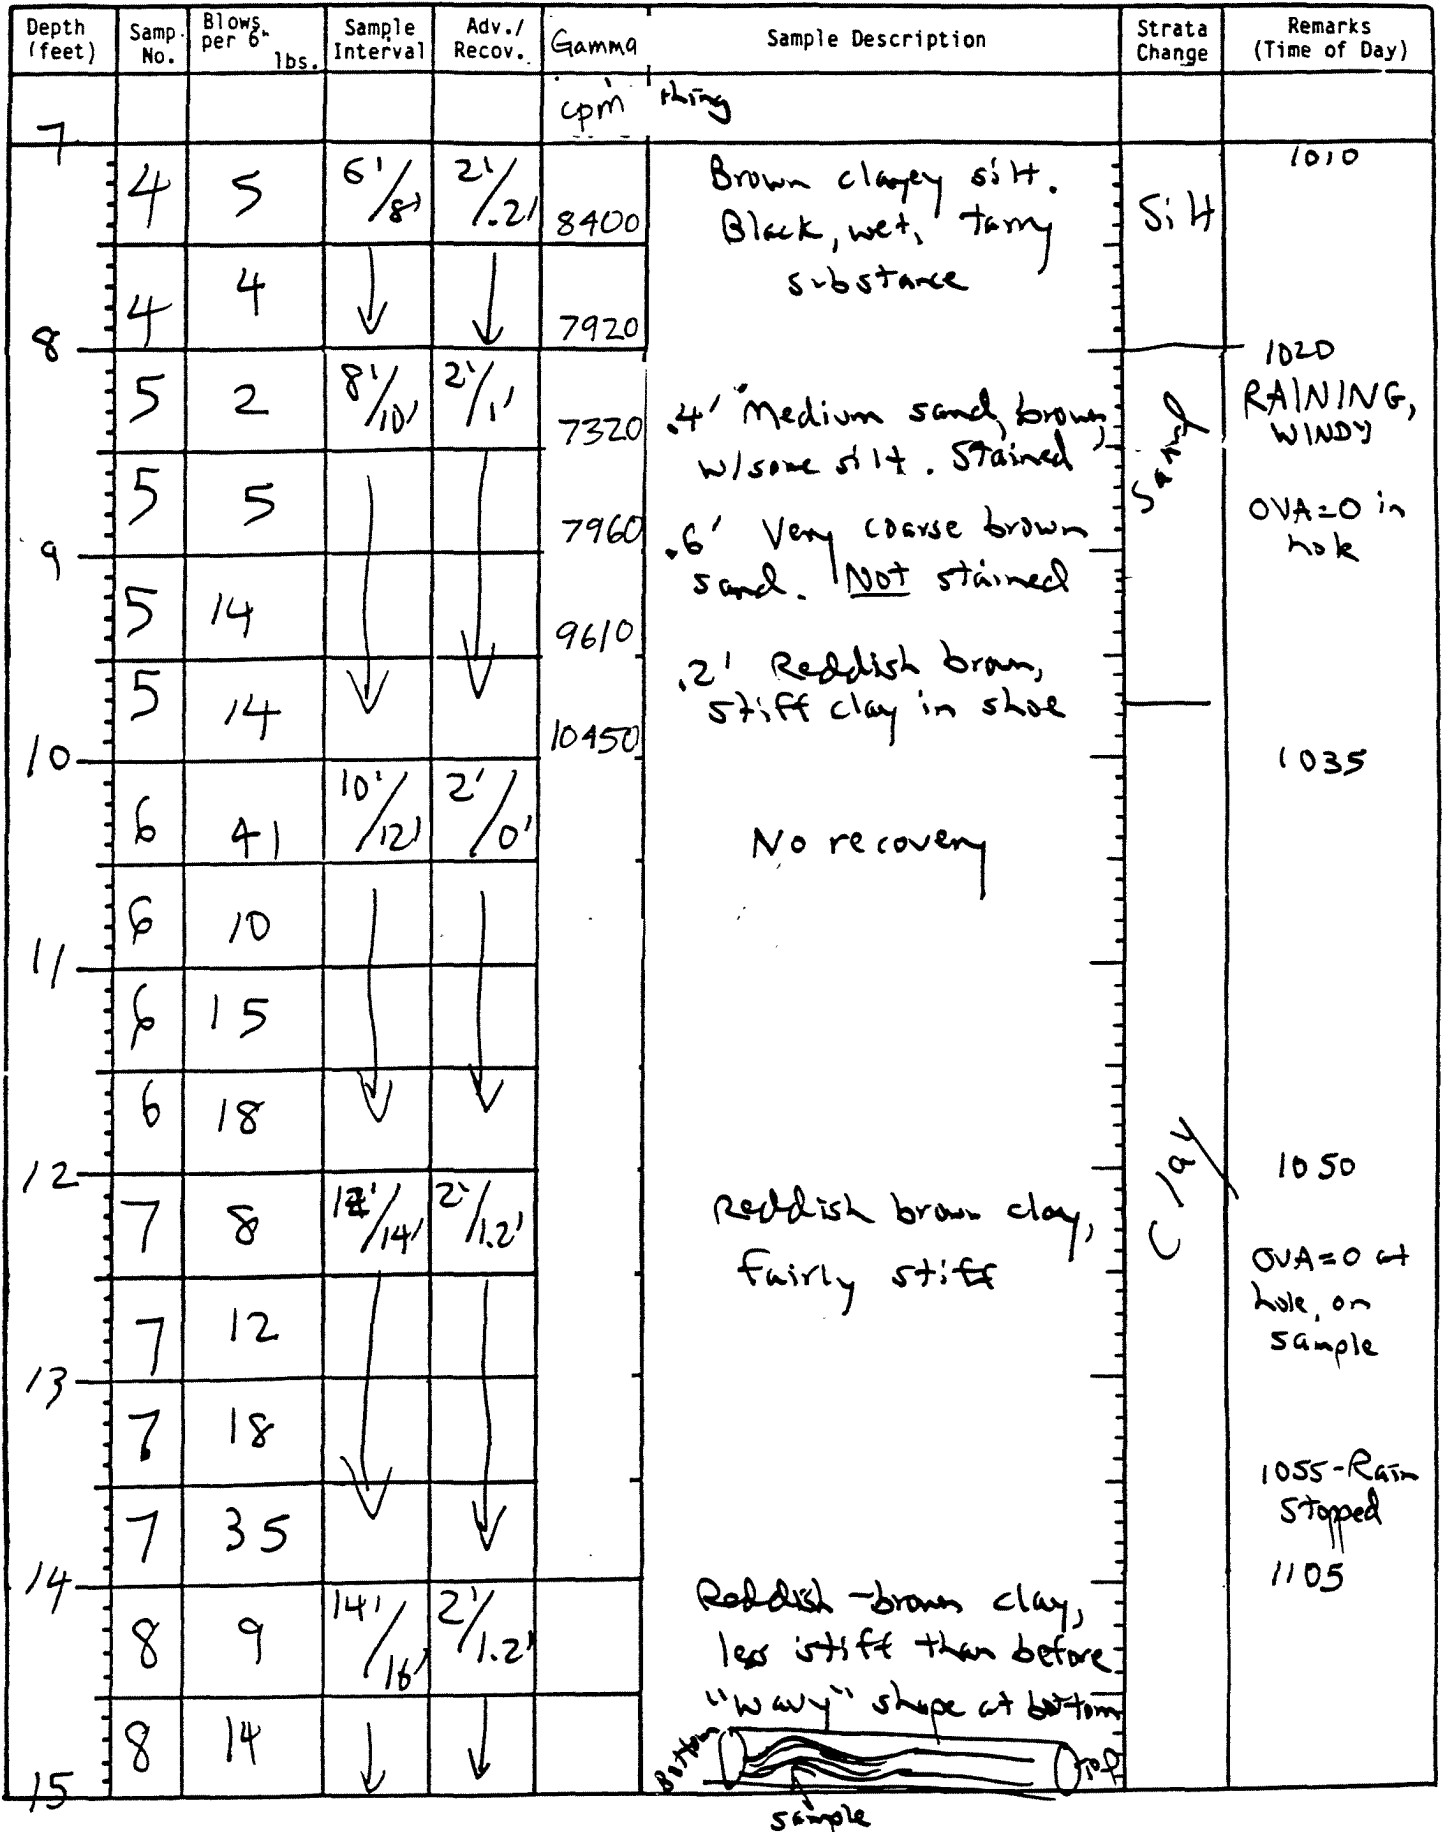 Depth (feet) Samp. No. Blows per 6" lbs. Sample Interval Adv./ Recov. Gamma Sample Description Strata Change Remarks (Time of Day)
cpm thing
7
4 5 6'/8' 2'/.2' 8400 Brown clayey silt. Silt 1010
Black, wet, tarry
substance
4 4 7920
8
1020
5 2 8'/10' 2'/1' 7320 .4' Medium sand, brown, Sand RAINING,
w/some silt. Stained WINDY
5 5 7960 .6' Very coarse brown OVA=0 in
sand. NOT stained hole
9
5 14 9610
.2' Reddish brown,
5 14 10450 stiff clay in shoe
10
1035
6 41 10'/12' 2'/0' No recovery
6 10
11
6 15
6 18
12
Clay 1050
7 8 12'/14' 2'/1.2' Reddish brown clay,
fairly stiff OVA=0 at
7 12 hole, on
sample
13
7 18
1055-Rain
7 35 Stopped
14
1105
8 9 14'/16' 2'/1.2' Reddish-brown clay,
less stiff than before
"wavy" shape at bottom
8 14 Bottom Top
15
sample